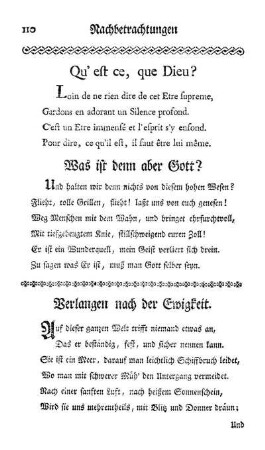 110 Nachbetrachtungen
Qu'est ce, que Dieu?
Loin de ne rien dite de cet Etre supreme,
Gardons en adorant un Silence profond.
C'est un Etre immense et l'esprit s'y enfond.
Pour dire, ce qu'il est, il faut être lui même.
Was ist denn aber Gott?
Und halten wir denn nichts von diesem hohen Wesen?
Flieht, tolle Grillen, flieht! laßt uns von euch genesen!
Weg Menschen mit dem Wahn, und bringet ehrfurchtvoll,
Mit tiefgebeugtem Knie, stillschweigend euren Zoll!
Er ist ein Wunderquell, mein Geist verliert sich drein.
Zu sagen was Er ist, muß man Gott selber seyn.
Verlangen nach der Ewigkeit.
Auf dieser ganzen Welt trifft niemand etwas an,
Das er beständig, fest, und sicher nennen kann.
Sie ist ein Meer, darauf man leichtlich Schiffbruch leidet,
Wo man mit schwerer Müh' den Untergang vermeidet.
Nach einer sanften Luft, nach heißem Sonnenschein,
Wird sie uns mehrentheils, mit Blitz und Donner dräun;
Und